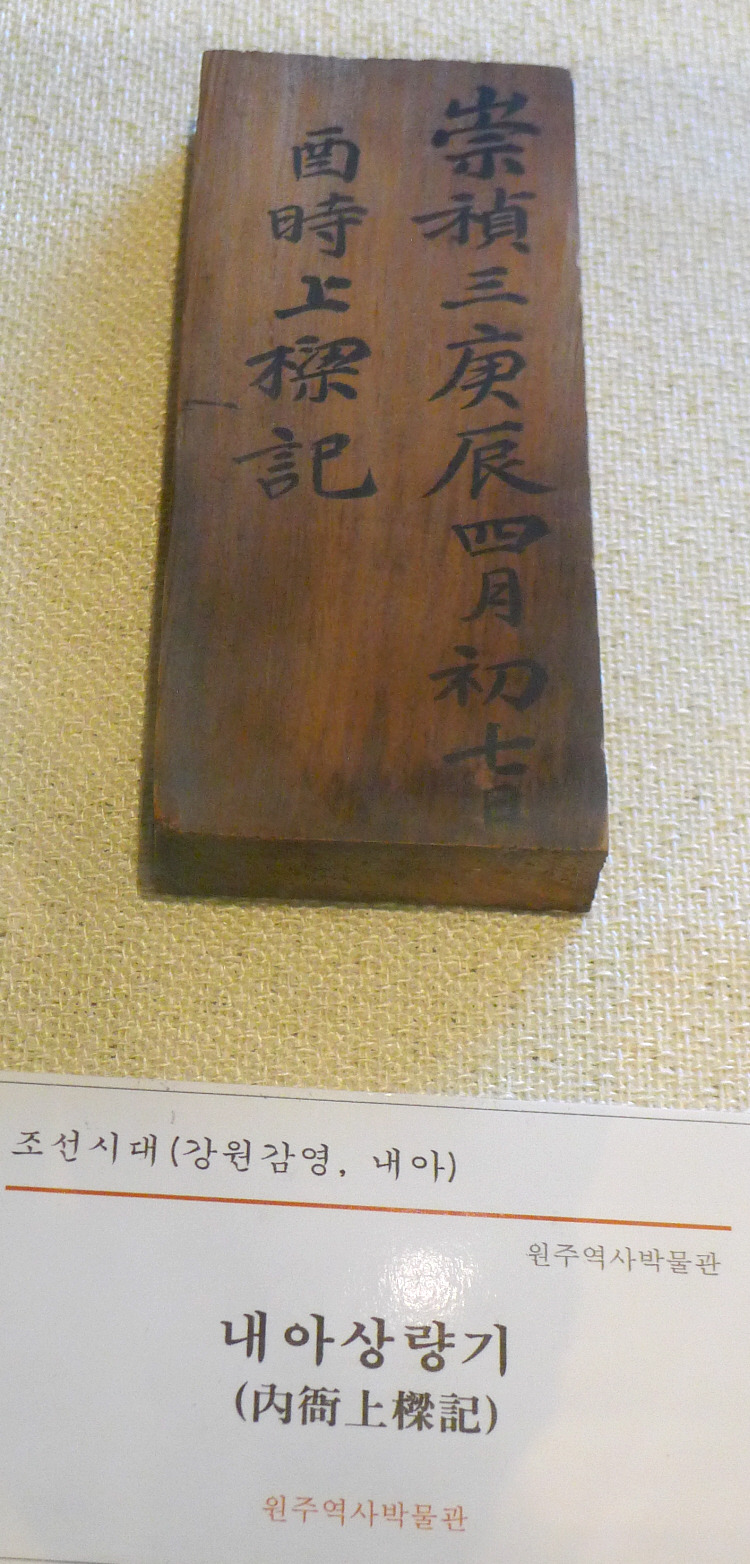 崇禎三庚辰四月初七日
酉時上樑記
조선시대(강원감영, 내아)
원주역사박물관
내아상량기
(內衙上樑記)
원주역사박물관